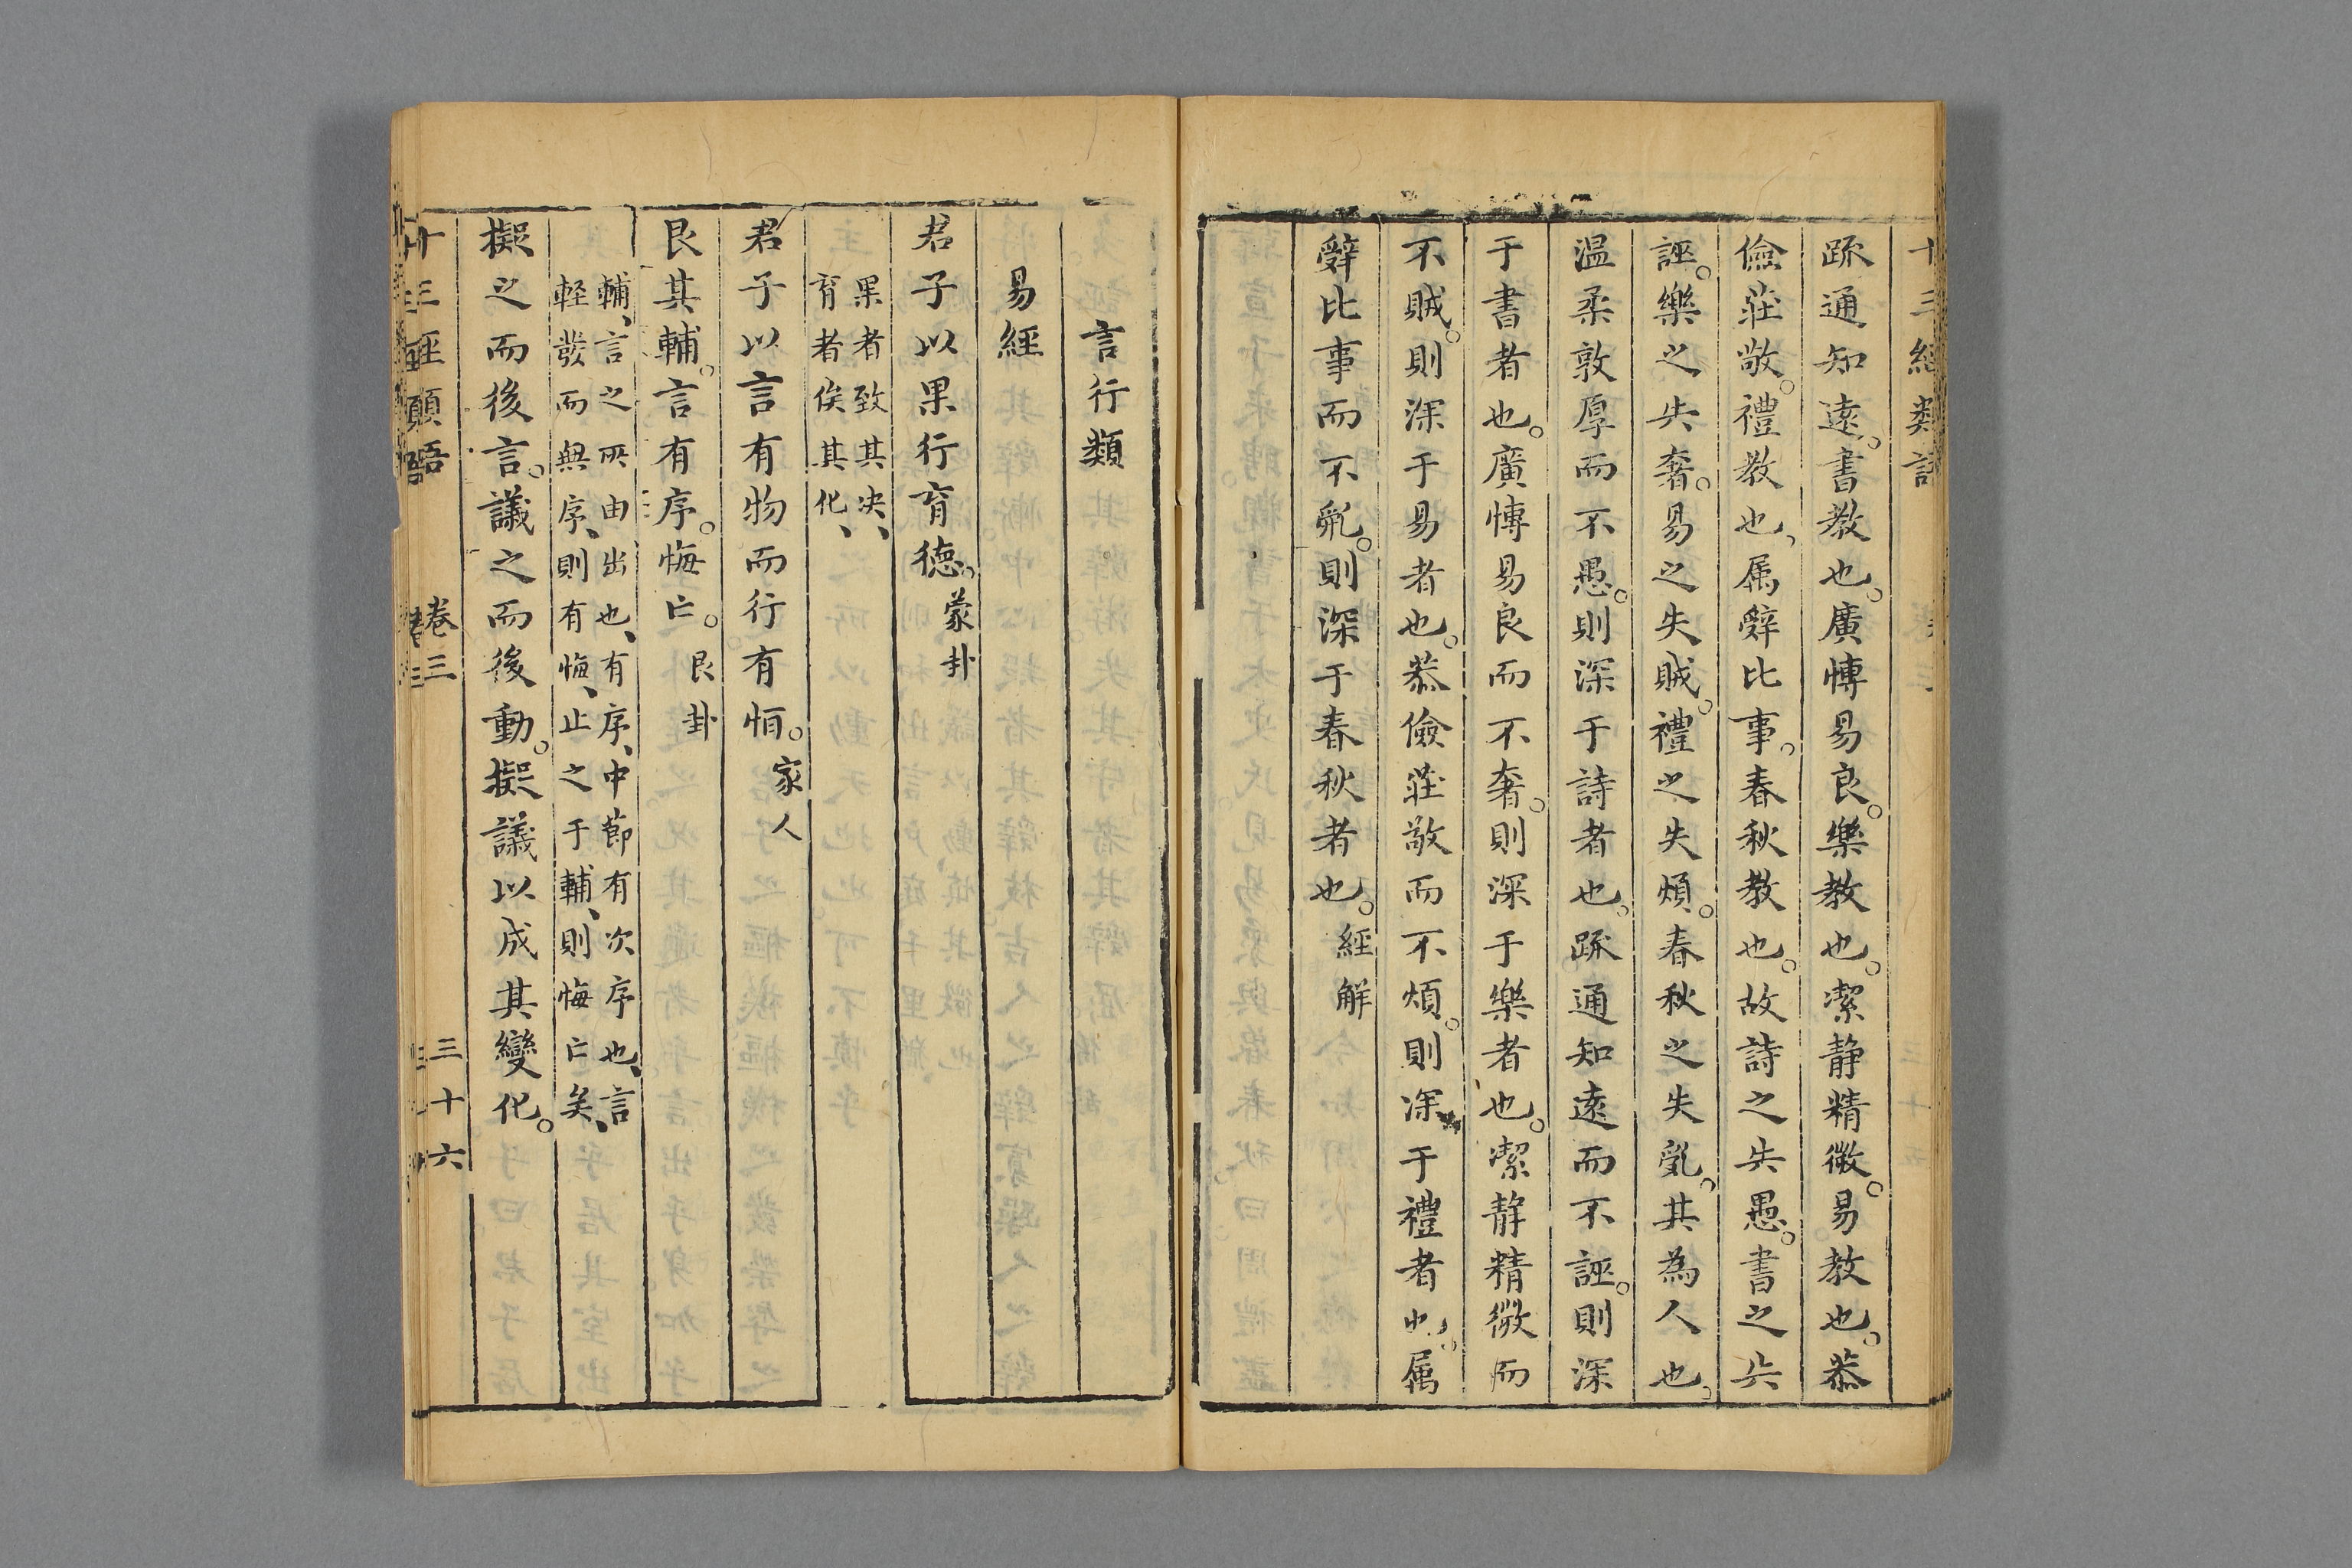 十三經類語
疏通知遠。書教也。廣博易良。樂教也。潔静精微。易教也。恭
儉莊敬。禮教也。属辭比事。春秋教也。故詩之失愚。書之失
誣。樂之失奢。易之失賊。禮之失煩。春秋之失亂。其為人也。
温柔敦厚而不愚。則深于詩者也。疏通知遠而不誣。則深
于書者也。廣博易良而不奢。則深于樂者也。潔静精微而
不賊。則深于易者也。恭儉莊敬而不煩。則深于禮者也。属
辭比事而不亂。則深于春秋者也。經解
言行類
易經
君子以果行育德。蒙卦
果者致其决、
育者俟其化、
君子以言有物而行有恒。家人
艮其輔。言有序。悔亡。艮卦
輔、言之所由出也、有序、中節有次序也、言
軽發而無序、則有悔、止之于輔、則悔亡矣、
擬之而後言。議之而後動。擬議以成其變化。
十三經類語 卷三 三十六